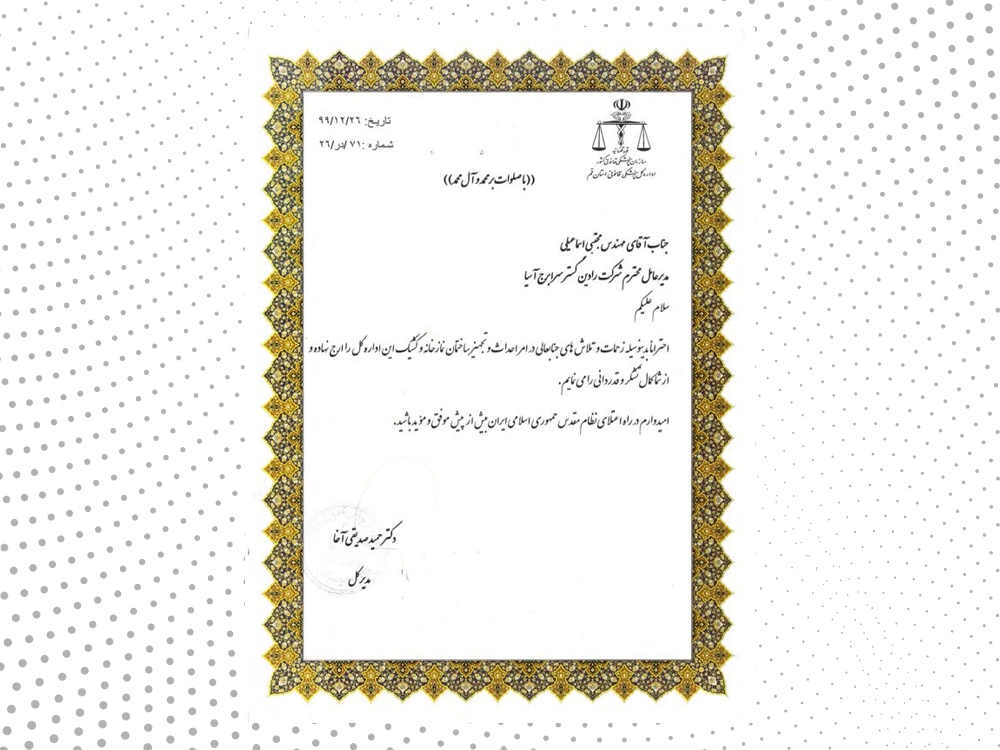 تاریخ: ۹۹/۱۲/۲۶
شماره: ۷۱/در/۲۶
قوه قضائیه
سازمان پزشکی قانونی کشور
اداره کل پزشکی قانونی استان قم
((با صلوات بر محمد و آل محمد))
جناب آقای مهندس مجتبی اسماعیلی
مدیرعامل محترم شرکت رادین گستر سرابرج آسیا
سلام علیکم
احتراماً بدینوسیله زحمات و تلاش های جنابعالی در امر احداث و تجهیز ساختمان نمازخانه و کلینیک این اداره کل را ارج نهاده و
از شما کمال تشکر و قدردانی را می نمایم.
امیدوارم در راه اعتلای نظام مقدس جمهوری اسلامی ایران بیش از پیش موفق و مؤید باشید.
دکتر حمید صدیقی آغا
مدیر کل